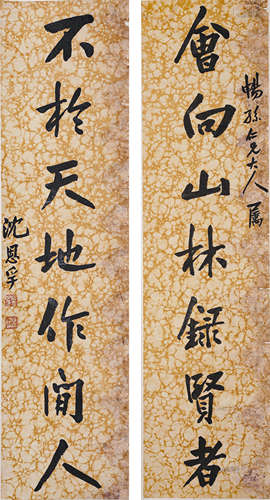 暢孫仁兄大人屬
會向山林録賢者
不於天地作閒人
沈恩孚